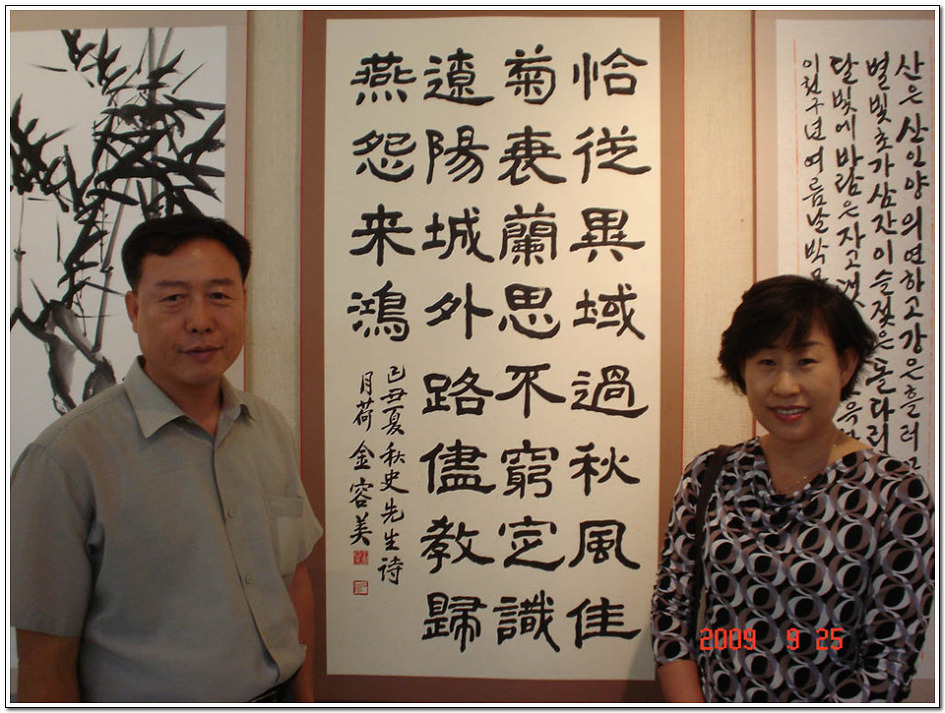 산은산인양의연하고강은흘러
별빛초가삼간이슬젖은돌다리
달빛에바람은자고
이천구년여름날박
恰從異域過秋風佳
菊衰蘭思不窮定識
遼陽城外路儘教歸
燕怨来鴻
己丑夏秋史先生詩
月荷 金容美
2009 9 25